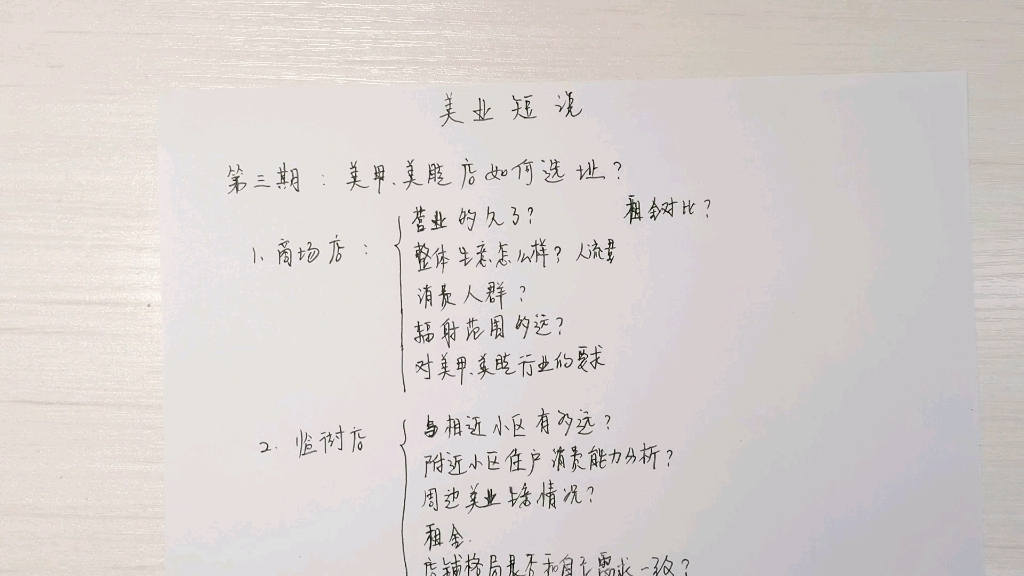 美业短说
第三期：美甲、美睫店如何选址？
营业多久了？ 租金对比？
1、商场店：
整体生意怎么样？人流量
消费人群？
辐射范围多远？
对美甲、美睫行业的要求
与相近小区有多远？
2. 临街店
附近小区住户消费能力分析？
周边美业生意情况？
租金.
店铺格局是否和自己需求一致？